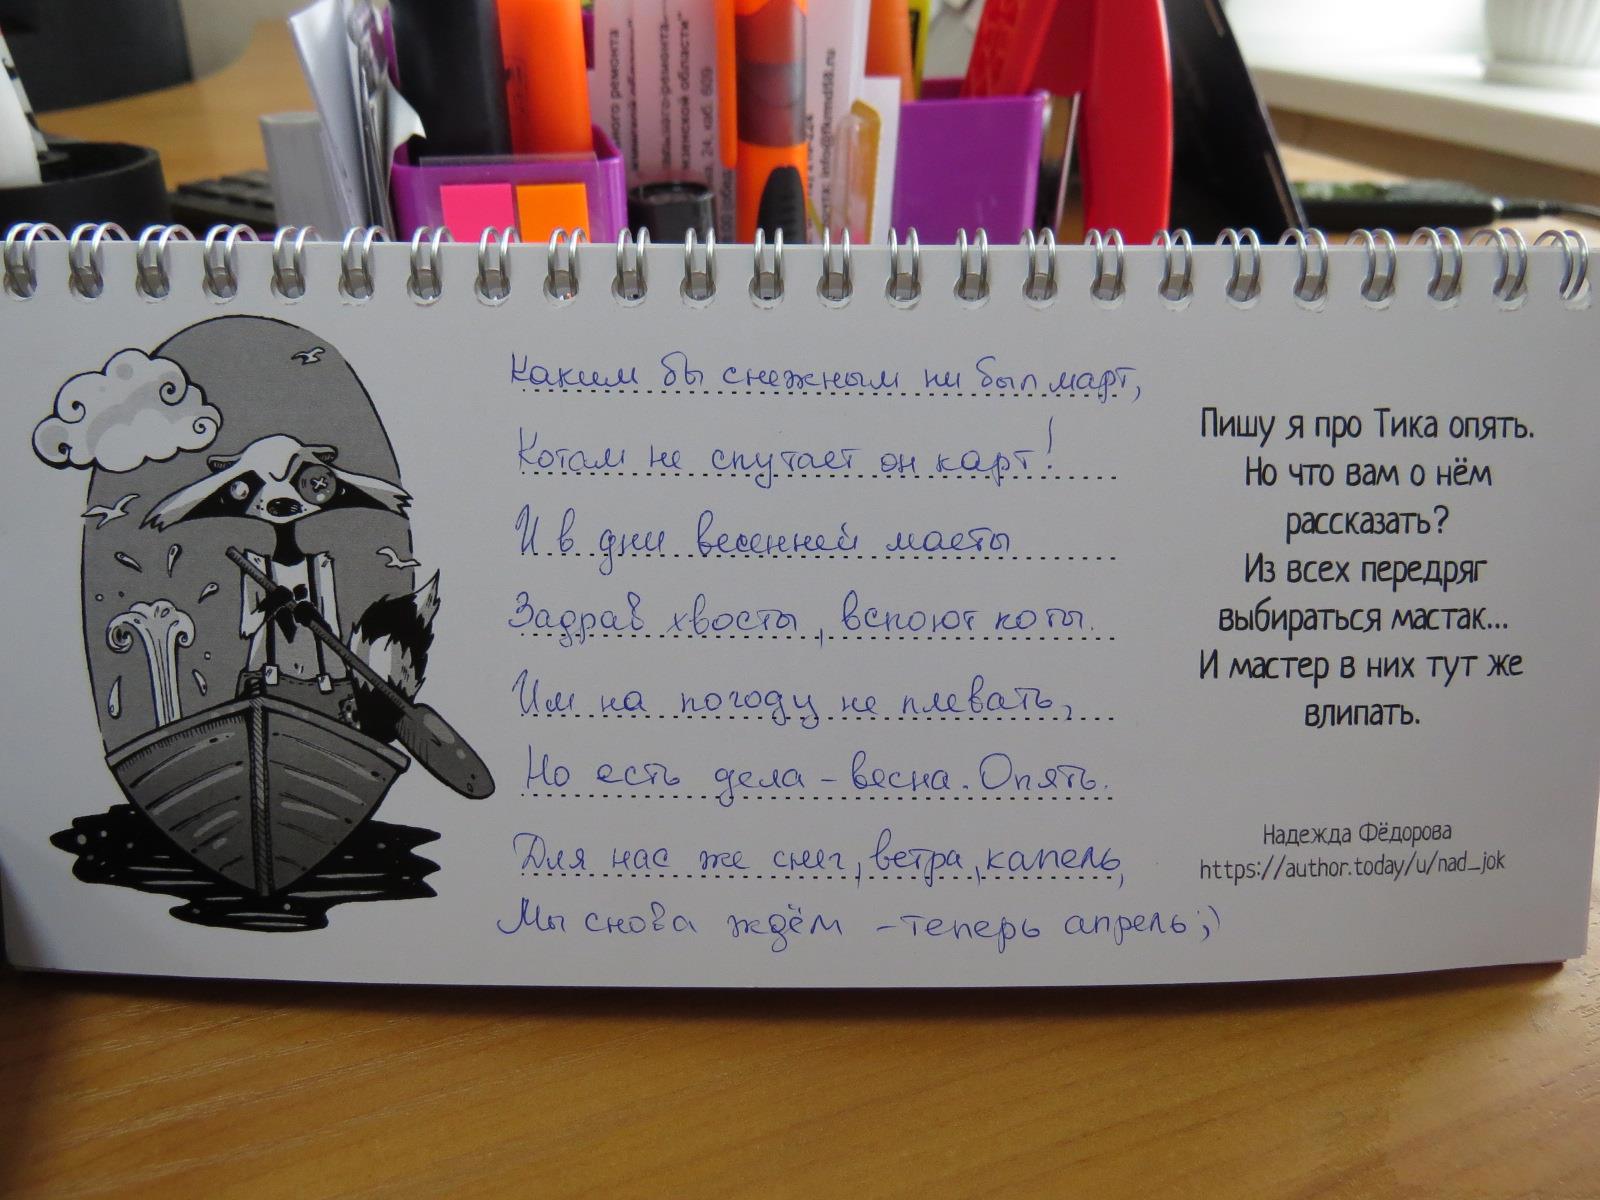 Каким бы снежным ни был март,
Котам не спутает он карт!
И в дни весенней маеты
Задрав хвосты, вспоют коты.
Им на погоду не плевать,
Но есть дела - весна. Опять.
Для нас же снег, ветра, капель,
Мы снова ждём - теперь апрель ;)
Пишу я про Тика опять.
Но что вам о нём
рассказать?
Из всех передряг
выбираться мастак...
И мастер в них тут же
влипать.
Надежда Фёдорова
https://author.today/u/nad_jok